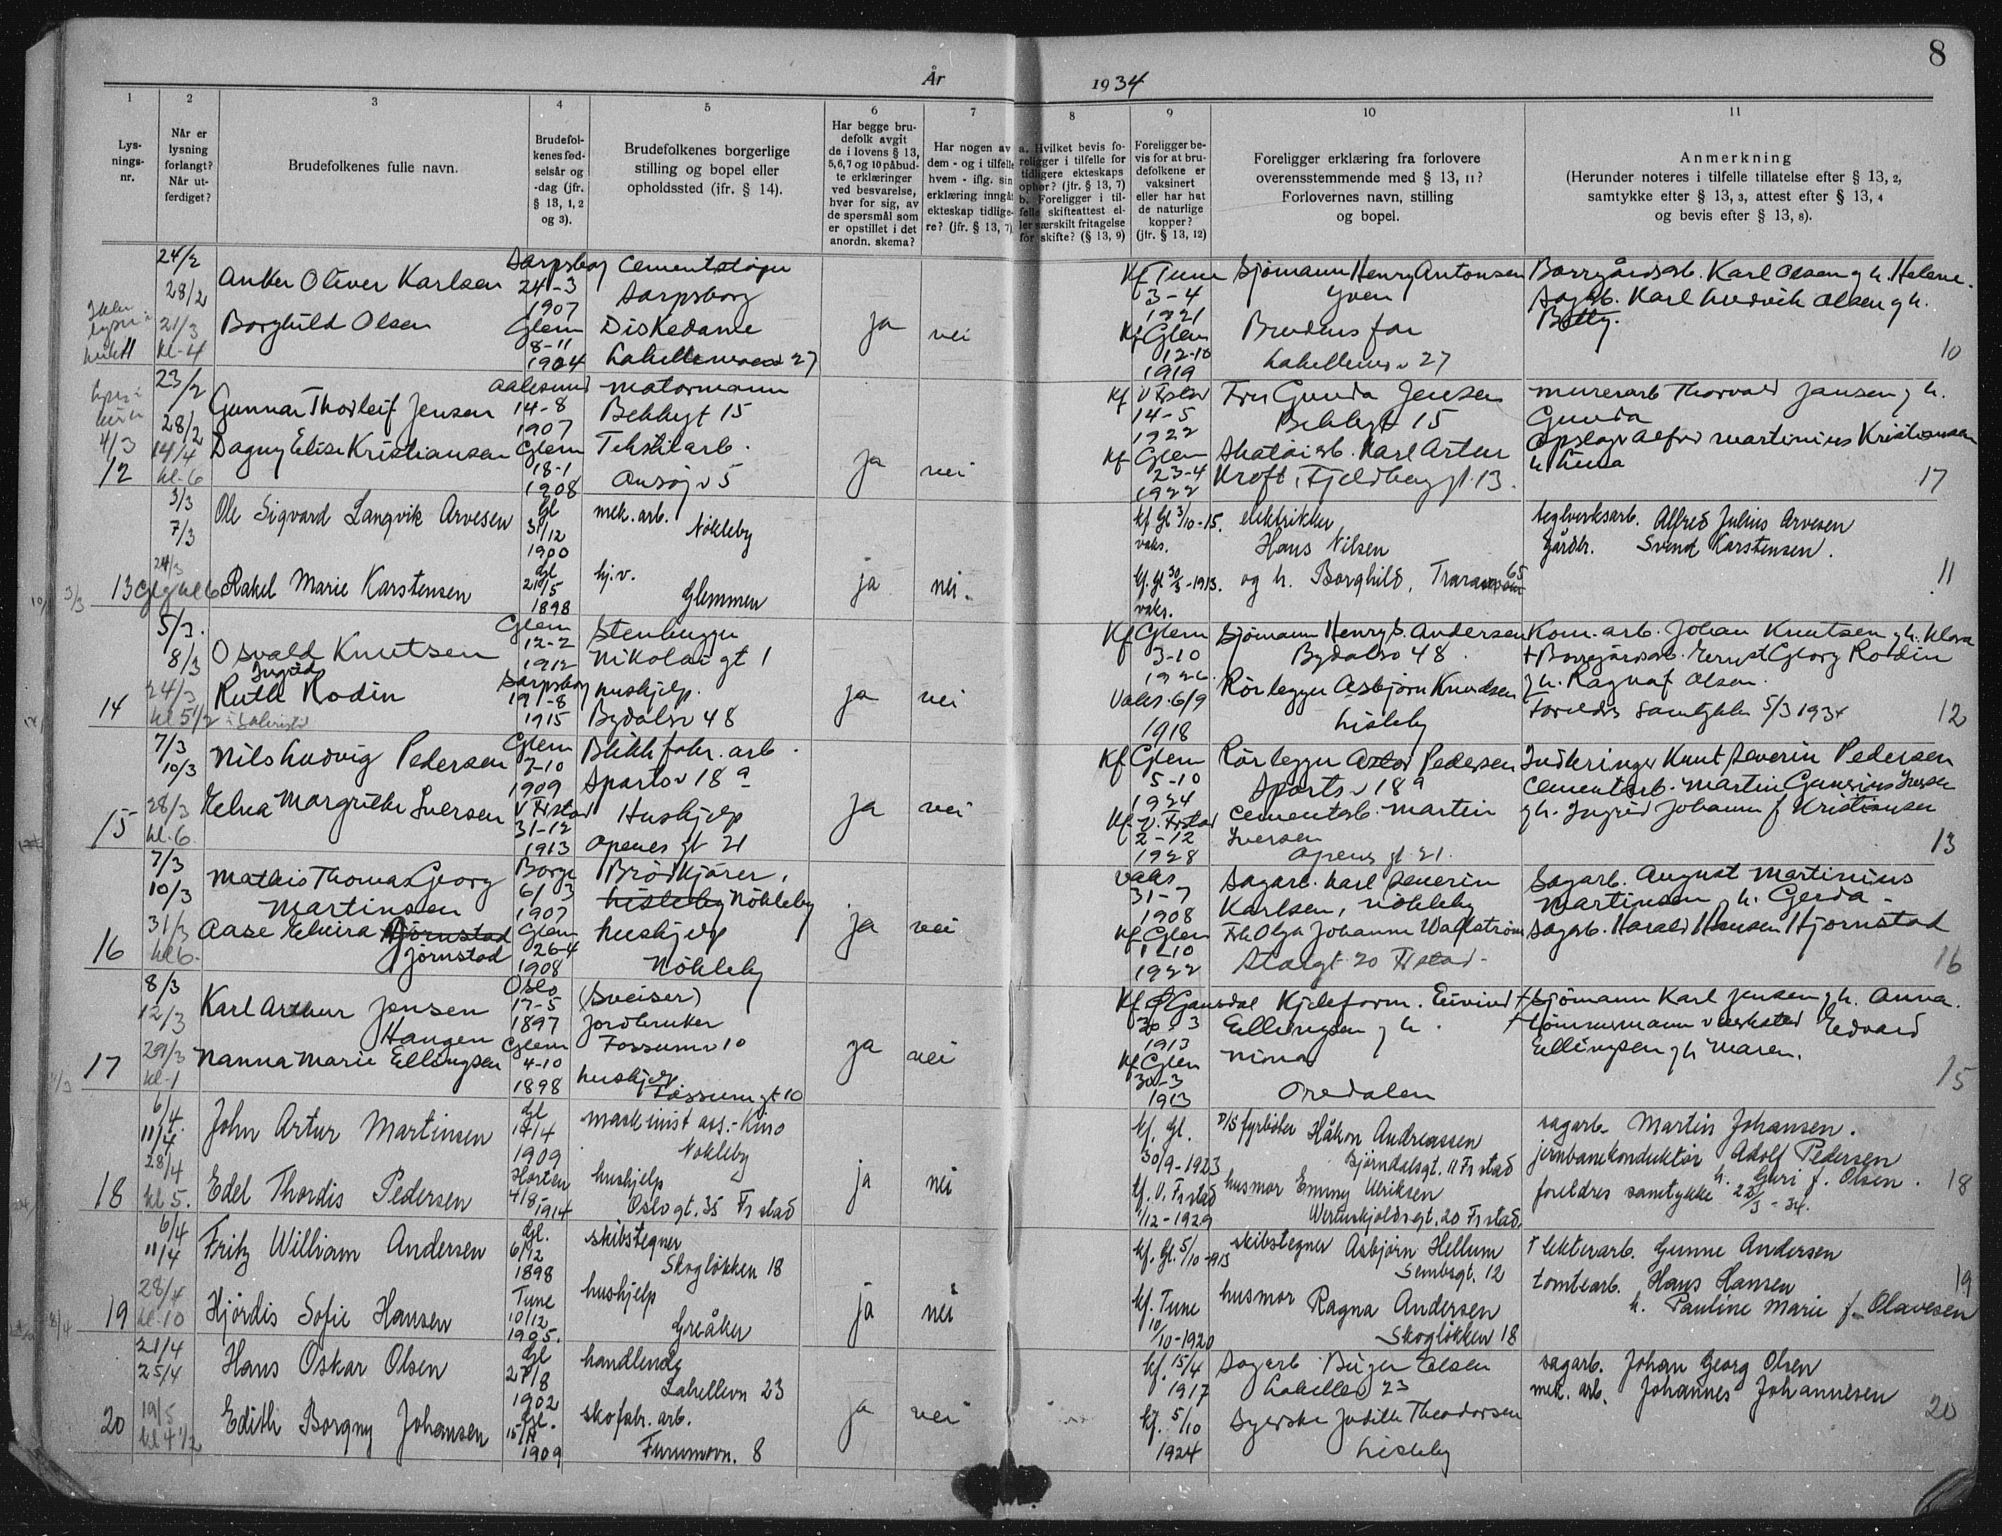 8
År 1934
1 2 3 4 5 6 7 8 9 10 11
Lysningsnr.
Når er lysning forlangt? Når utferdiget?
Brudefolkenes fulle navn.
Brudefolkenes fødselsår og -dag (jfr. § 13, 1, 2 og 3).
Brudefolkenes borgerlige stilling og bopel eller opholdssted (ifr. § 14).
Har begge brudefolk avgit de i lovens § 13, 5,6,7 og 10 påbudte erklæringer ved besvarelse, hver for sig, av de spørsmål som er opstillet i det anordn. skema?
Har nogen av dem - og i tilfelle hvem - iflg. sin erklæring inngåt ekteskap tidligere? (jfr. § 13, 7)
a. Hvilket bevis foreligger i tilfelle for tidligere ekteskaps ophør? (jfr. § 13, 7)
b. Foreligger i tilfelle skifteattest eller særskilt fritagelse for skifte? (§ 13, 9)
Foreligger bevis for at brudefolkene er vaksinert eller har hat de naturlige kopper? (jfr. § 13, 12)
Foreligger erklæring fra forlovere overensstemmende med § 13, 11? Forlovernes navn, stilling og bopel.
Anmerkning
(Herunder noteres i tilfelle tillatelse efter § 13, 2, samtykke efter § 13, 3, attest efter § 13, 4 og bevis efter § 13, 8).
24/2 Anker Oliver Karlsen Sarpsborg 24-3 1907 Sarpsborg Kf Tune 3-4 1921 Sjømann Henry Antonsen Yven Borregårdsarb. Karl Olsen g h. Helene
28/2
11 21/3 kl-4 Borghild Olsen Glem 8-11 1904 Diskedame 27 ja nei Kf Glem 12-10 1919 Brudens far 27 Sagarb. Karl Ludvik Olsen g h. Betty. 10
23/2 Gunnar Thorleif Jensen Aalesund 14-8 1907 motormann 15 Kf V Frstad 14-5 1922 Fru Gunda Jensen 15 murerarb Thorvald Jansen g h. Gunda
28/2
4/3
12 14/4 kl-6 Dagny Elise Kristiansen Glem 18-1 1908 Tekstilarb. 5 ja nei Kf Glem 23-4 1922 Karl Artur Kroft, Fjeldberg gt. 13. Alfred Martinius Kristiansen 17
3/3 Ole Sigvard Langvik Arvesen Gl 31/12 1900 mek. arb. Nökleby kf. Gl 3/10-15. vaks. elektriker Hans Nilsen teglverksarb. Alfred Julius Arvesen
7/3
13 24/3 kl 6 Rakel Marie Karstensen Gl 20/5 1898 hj.v. Glemmen ja nei. kf. Gl 30/3-1913. vaks. og h. Borghild, 65 Gårdbr. Svend Karstensen. 11
5/3. Osvald Knutsen Glem 12-2 1912 Stenhugger Nikolai gt 1 Kf Glem 3-10 1926 Sjømann Henry S. Andersen Bydalsv 48. Kom. arb. Johan Knutsen g h. Klara
8/3
14 24/3 kl 5 1/2 Ruth Ingrid Rodin Sarpsborg 19-8 1915 hushjelp. Bydalsv 48 ja nei Vaks. 6/9 1918 Rörlegger Asbjørn Knudsen Lisleby + Borregårdsarb. Ernst Georg Rodin g h. Ragna f Olsen. Foreldres samtykke 5/3 1934 12
7/3 Nils Ludvig Pedersen Glem 7-10 1909 Blikkfabr. arb. Sportsv 18 a Kf Glem 5-10 1924 Rörlegger Pedersen Sportsv 18 a Indkringer Knut Severin Pedersen
10/3
15 28/3 kl-6 Elna Margrethe Iversen V Frstad 31-12 1913 Hushjelp Apenes gt 21 ja nei Kf V. Frstad 2-12 1928 cementarb. Martin Iversen Apenes gt 21. Cementarb. Martin Gunerius Iversen g h. Ingrid Johanne f Kristiansen 13
7/3 Mathis Thomas Georg Martinsen Borge 6/3 1907 Brödkjører, Lisleby Nökleby vaks 31-7 1908 Sagarb. Karl Severin Karlsen, Nökleby Sagarb. August Martinius Martinsen g h. Gerda
10/3
16 31/3 kl 6. Aase Elvira Hjørnstad Hjörnstad Glem 26-4 1908 hushjelp Nökleby ja nei Kf Glem 1-10 1922 Frk Olga Johanne Wallström Storgt 20 Frstad Sagarb. Harald Hansen Hjørnstad 16
8/3 Karl Arthur Jensen Haugen Oslo 17-5 1897 (Sveiser) Jordbruker 10 Kf 30-3 1913 Kjeleform. Eivind Ellingsen g h. + Sjömann Karl Jensen g h. Anna.
12/3
17 29/3 kl-1 Nanna Marie Ellingsen Glem 4-10 1898 hushjelp Fossum gt 10 ja nei Kf Glem 30-3 1913 Nina Oredalen + tömmermann Edvard Ellingsen g h Maren. 15
6/4. John Artur Martinsen Gl 1909 maskinist ass.-Kino Nökleby kf. Gl. 30/9-1923 D/S fyrböter Håkon Andreassen Bjørndalsgt. 11 Fr stad sagarb. Martin Johansen.
11/4
18 28/4 kl 5. Edel Thordis Pedersen Horten 4/8-1914 hushjelp Oslogt. 35 Fr stad ja nei kf. V. Fr stad 1/12-1929 husmor Emmy Ulriksen Werenskjoldsgt. 20 Fr stad. jernbanekonduktør Adolf Pedersen h. Guri f. Olsen. foreldres samtykke 22/3-34. 18
6/4 Fritz William Andersen Gl. 6/12 1898 skibstegner Skogløkken 18 kf. Gl. 5/10-913 skibstegner Asbjørn Hellum Sembsgt. 12 + lekterarb. Gunne Andersen
11/4
19 28/4 kl-10 Hjördis Sofie Hansen Tune 10/12 1905. hushjelp Greåker ja nei kf. Tune 10/10-1920 husmor Ragna Andersen Skogløkken 18 tomtearb. Hans Hansen h. Pauline Marie f. Olavesen 19
21/4 Hans Oskar Olsen Gl 27/8 1902 handlende Labellevn 23 kf. 15/4 1917 Sagarb Birger Olsen 23 sagarb. Johan Georg Olsen
25/4
20 19/5 kl 4 1/2 Edith Borgny Johansen Gl. 1909 skofabr. arb. Furumovn. 8 ja nei kf. 5/10 1924 Syerske Judith Theodorsen Lisleby mek. arb. Johannes Johannesen 20